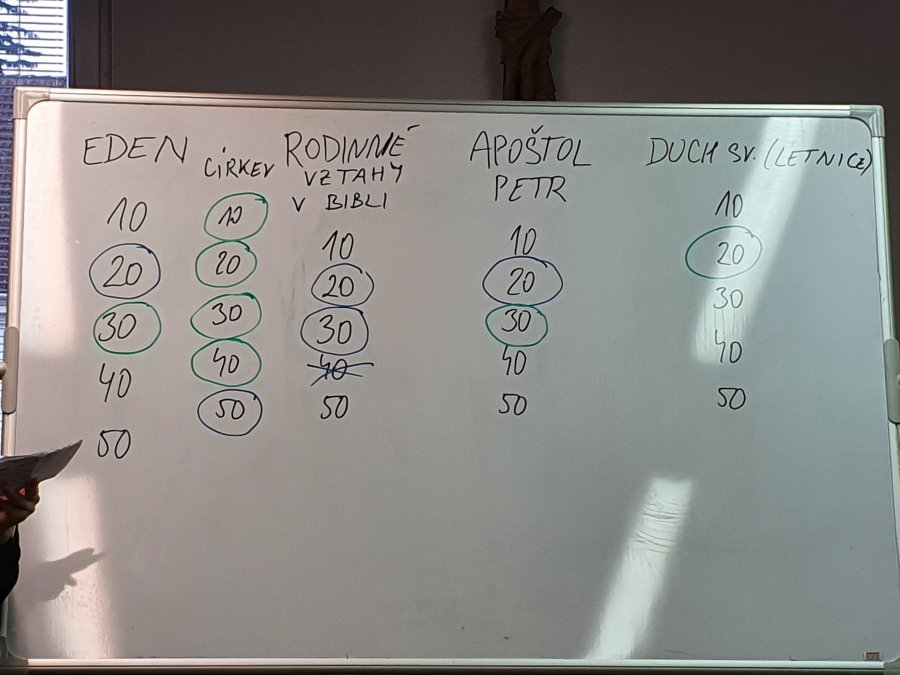 EDEN
10
20
30
40
50
CÍRKEV
10
20
30
40
50
RODINNÉ
VZTAHY
V BIBLI
10
20
30
40
50
APOŠTOL
PETR
10
20
30
40
50
DUCH SV. (LETNICE)
10
20
30
40
50